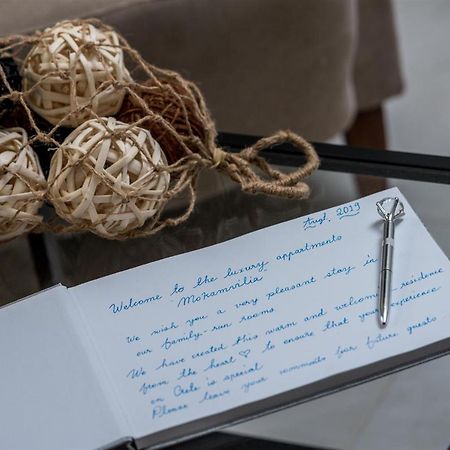 Augt. 2019
Welcome to the luxury appartments
Mokamvilia
We wish you a very pleasant stay in
our family-run rooms
We have created this warm and welcoming residence
from the heart ♡ to ensure that your experience
on Crete is special
Please leave your commends for future guests